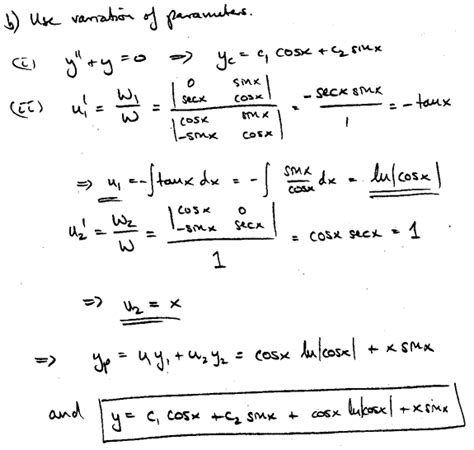 b) Use variation of parameters.
(i) y'' + y = 0 ⇒ y_c = c₁ cosx + c₂ sinx
(ii) u₁' = W₁/W = |0 sinx; secx cosx| / |cosx sinx; -sinx cosx| = -secx sinx / 1 = -tanx
⇒ u₁ = -∫tanx dx = -∫ sinx/cosx dx = ln|cosx|
u₂' = W₂/W = |cosx 0; -sinx secx| / 1 = cosx secx = 1
⇒ u₂ = x
⇒ y_p = u₁y₁ + u₂y₂ = cosx ln|cosx| + x sinx
and y = c₁ cosx + c₂ sinx + cosx ln|cosx| + x sinx